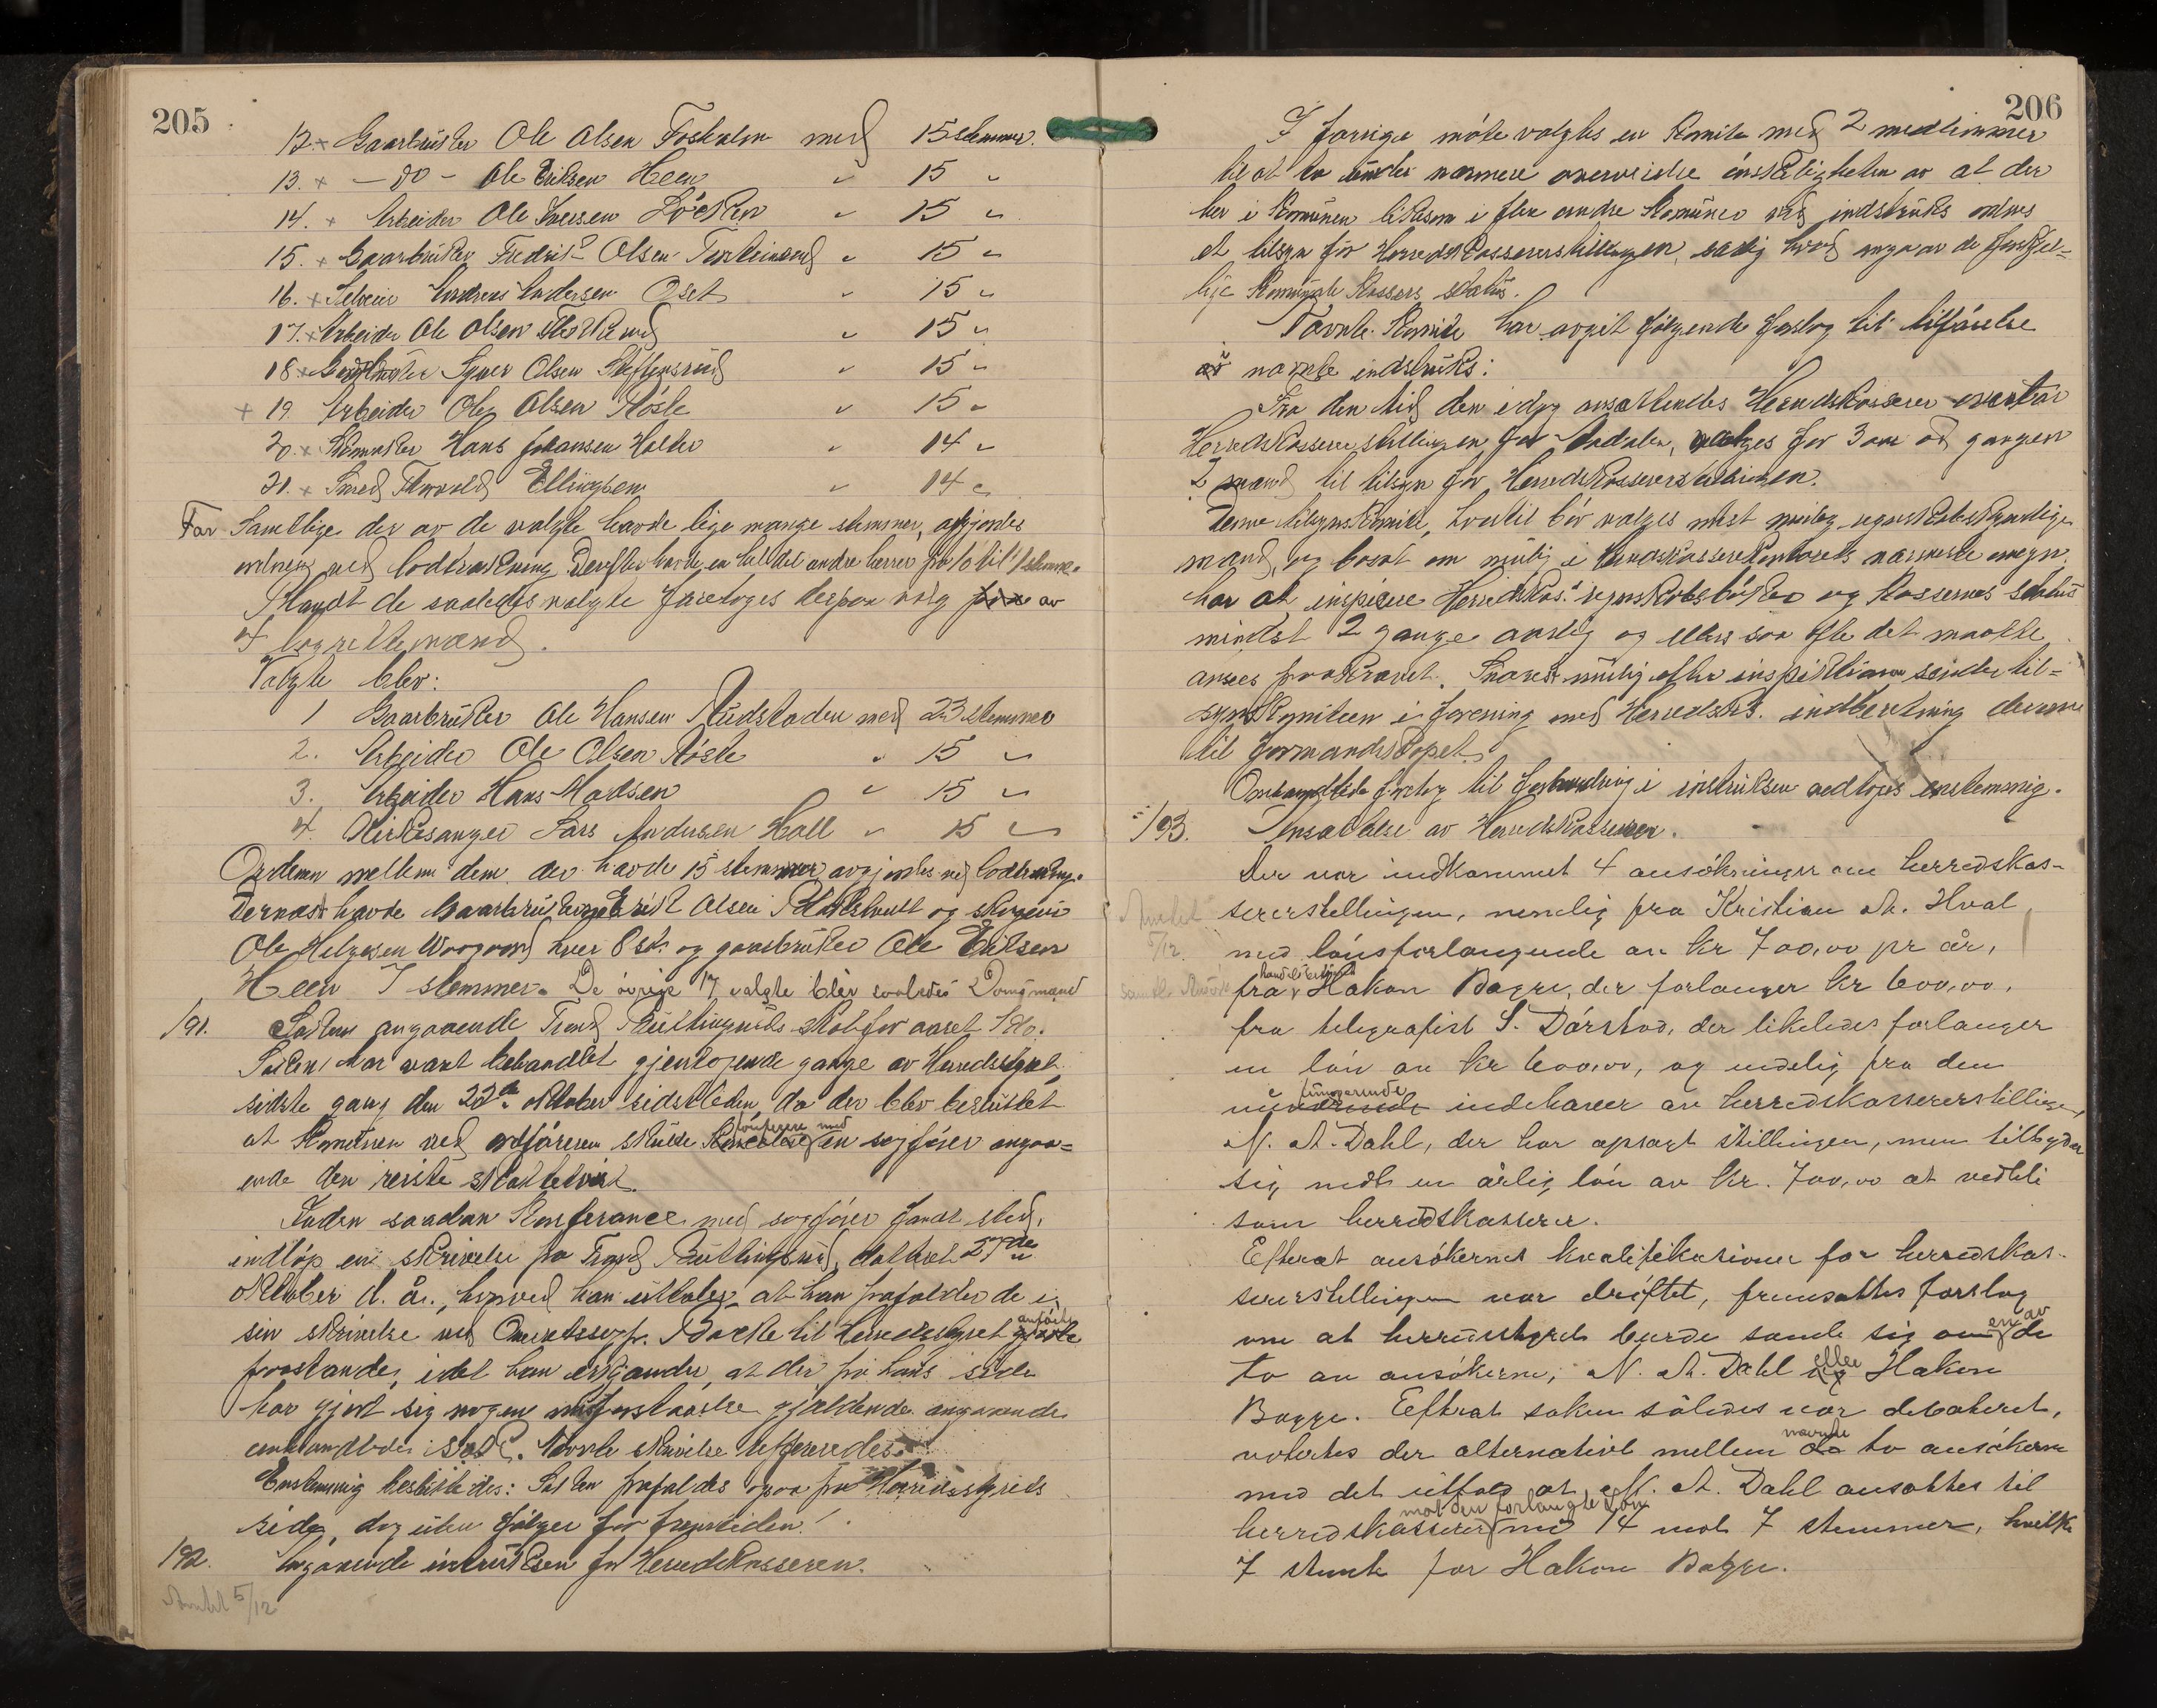 205
12. x Gaarbruker Ole Olsen Foshalm med 15 stemmer.
13. x – do – Ole Eriksen Heen " 15 "
14. x Arbeider Ole Iversen Løkken " 15 "
15. x Gaarbruker Fredrik Olsen " 15 "
16. x Selveier Andreas Andersen Oset " 15 "
17. x Arbeider Ole Olsen " 15 "
18 x Olsen Steffensrud " 15 "
x 19. Arbeider Ole Olsen Røste " 15 "
20. x Hans Johansen Holte " 14 "
21. x Smed Thorvald Ellingsen " 14 "
For Samtlige der av de valgte havde lige mange stemmer, avgjordes
ordnen ved lodtrækning. Derefter havde en hel del andre herrer fra 10 til 1 stemme.
Blandt de saaledes valgte foretoges derpaa valg av
4 lagrettemænd.
Valgte blev:
1 Gaarbruker Ole Hansen Rudstaden med 23 stemmer
2. Arbeider Ole Olsen Røste " 15 "
3. Arbeider Hans Madsen " 15 "
4. Kirkesanger Lars Andersen Hall " 15 "
Ordenen mellem dem der havde 15 stemmer avgjordes ved lodtrækning.
Dernæst havde Gaarbruker Olsen og
Ole Helgesen hver 8 st. og gaarbruker Ole Eriksen
Heen 7 stemmer. De øvrige 17 valgte blev saaledes Domsmænd
191. Saken angaaende Trond Buttingsruds skat for aaret
Saken har været behandlet gjentagende gange av Herredsstyret,
sidste gang den 22de oktober sidstleden, da der blev besluttet
at Komunen ved ordføreren skulde konferere med en sagfører angaa-
ende den reiste skattetvist.
Inden saadan Konferance med sagfører fandt sted,
indløp en skrivelse fra Trond Buttingsrud, dattert 27de
oktober d. år., hvorved han uttaler at han frafalder de i
sin skrivelse ved Overretssagf. Backe til Herredsstyret anførte
paastande, idet han erkjender, at der fra hans side
har gjort sig nogen misforstaaelse gjældende angaaende
omhandlede skat. Nævnte skrivelse refereredes.
Enstemmig besluttedes: Saken frafaldes ogsaa fra Herredsstyrets
side, dog uten følger for fremtiden.
192. Angaaende instruksen for Herredskasseren.
Anmeldt 5/12
206
I forrige møte valgtes en komite med 2 medlemmer
til at ta under nærmere overveielse ønskeligheten av at der
her i Komunen likesom i flere andre Komuner ved indstruks ordnes
et tilsyn for Herredskassererstillingen, særlig hvad angaar de forskjel-
lige Komunale Kassers status.
Nævnte Komite har avgit følgende forslag til tilføielse
i nævnte indstruks:
Fra den tid den i dag ansættendes Herredskasserer overtar
Herredskassererstillingen for Aadalen, vælges for 3 aar ad gangen
2 mænd til tilsyn for Herredskassererstillingen.
Denne tilsynskomite, hvortil bør vælges mest mulig regnskabskyndige
mænd, og bosat om mulig i Herredskassererkontorets nærmeste omegn,
har at inspisere Herredskas. regnskabsbøker og kassernes status
mindst 2 gange aarlig og ellers saa ofte det maatte
ansees paakrævet. Snarest mulig efter inspektionen sender til-
synskomiteen i forening med Herredsk. indberetning derom
til formandskapet.
Omhandlede forslag til forandring i instruksen vedtoges enstemmig.
193. Ansættelse av Herredskasserer.
Der var indkommet 4 ansøkninger om herredskas-
sererstellingen, nemelig fra Kristian M. Hval,
Anmeldt 5/12.
med lønsforlangende av kr 700,00 pr år,
fra handelsbetjent Hakon Bagge, der forlanger kr 600,00,
fra telegrafist S. Dårstad, der likeledes forlanger
en løn av kr 600,00, og endelig fra den
fungerende indehaver av herredskassererstillingen,
N. A. Dahl, der har opsagt stillingen, men tilbyder
sig mot en årlig løn av kr. 700,00 at vedbli
som herredskasserer.
Efterat ansøkernes kvalifikasioner for herredskas-
sererstellingen var drøftet, fremsattes forslag
om at herredsstyret burde samle sig om en av de
to av ansøkerne, N. A. Dahl eller Hakon
Bagge. Efterat saken således var debateret,
votertes der alternativt mellem nævnte to ansøkere
med det utfald at N. A. Dahl ansattes til
herredskasserer mot den forlangte løn med 14 mot 7 stemmer, hvilke
7 stemte for Hakon Bagge.